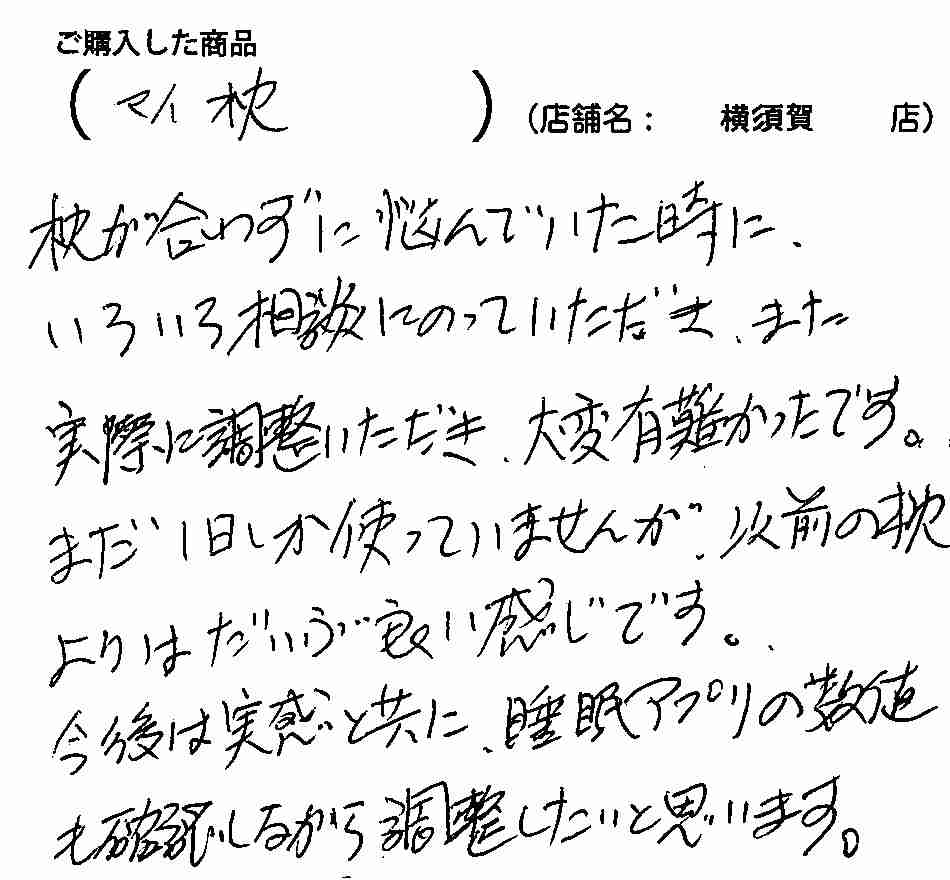 ご購入した商品
(マイ枕) (店舗名： 横須賀 店)
枕が合わずに悩んでいた時に、
いろいろ相談にのっていただき、また
実際に調整いただき、大変有難かったです。
まだ1日しか使っていませんが、以前の枕
よりはだいぶ良い感じです。
今後は実感と共に、睡眠アプリの数値
も確認しながら調整したいと思います。